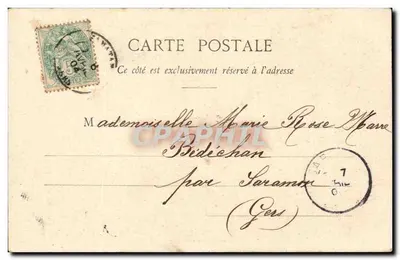 CARTE POSTALE
Ce côté est exclusivement réservé à l'adresse
Mademoiselle Marie Rose Marre
Bédéchan
par Saramon
(Gers)